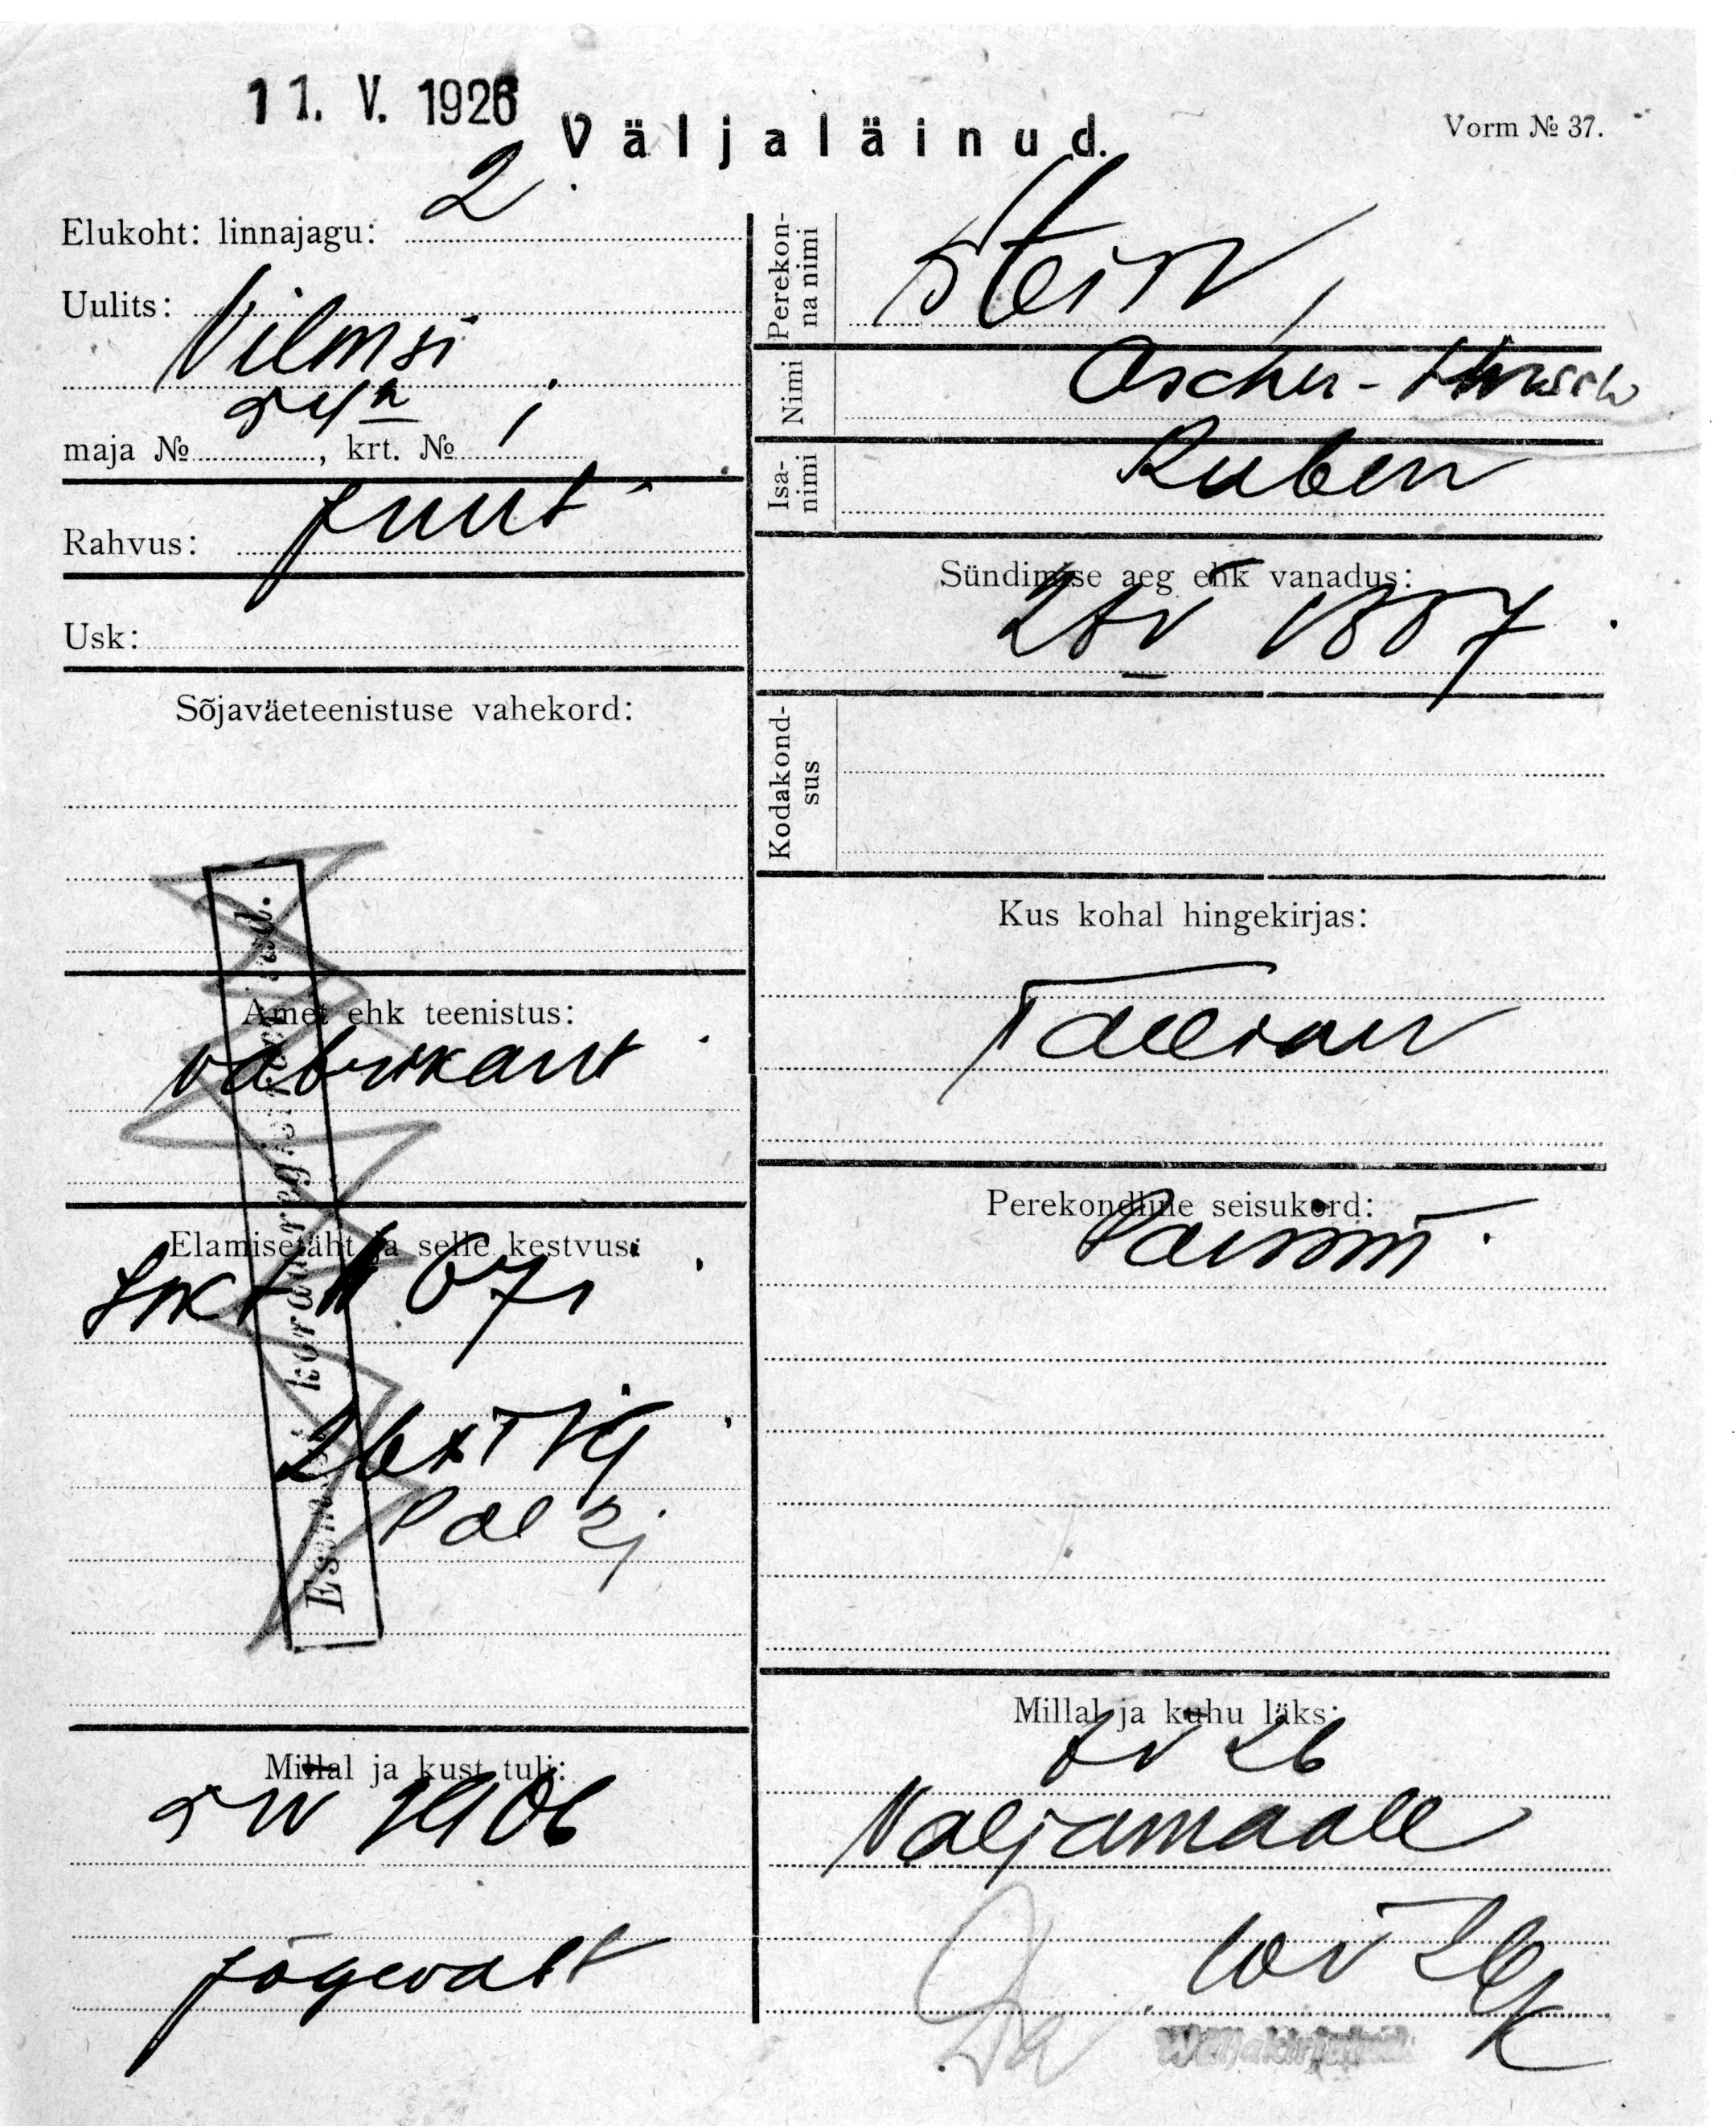 11. V. 1926
Väljaläinud.
Vorm № 37.
Elukoht: linnajagu: 2
Uulits: Vilmsi
maja №, krt. № 1
Rahvus: Juut
Usk:
Sõjaväeteenistuse vahekord:
Amet ehk teenistus:
vabrikant
Elamisetäht ja selle kestvus:
671
26 XI 19
Millal ja kust tuli:
1906
Jõgevalt
Perekonna nimi
Stein,
Nimi
Ascher-Hirsch
Isanimi
Ruben
Sündimise aeg ehk vanadus:
1887
Kodakondsus
Kus kohal hingekirjas:
Tallinn
Perekondline seisukord:
Millal ja kuhu läks:
7 V 26
Väljamaale
10 V 26